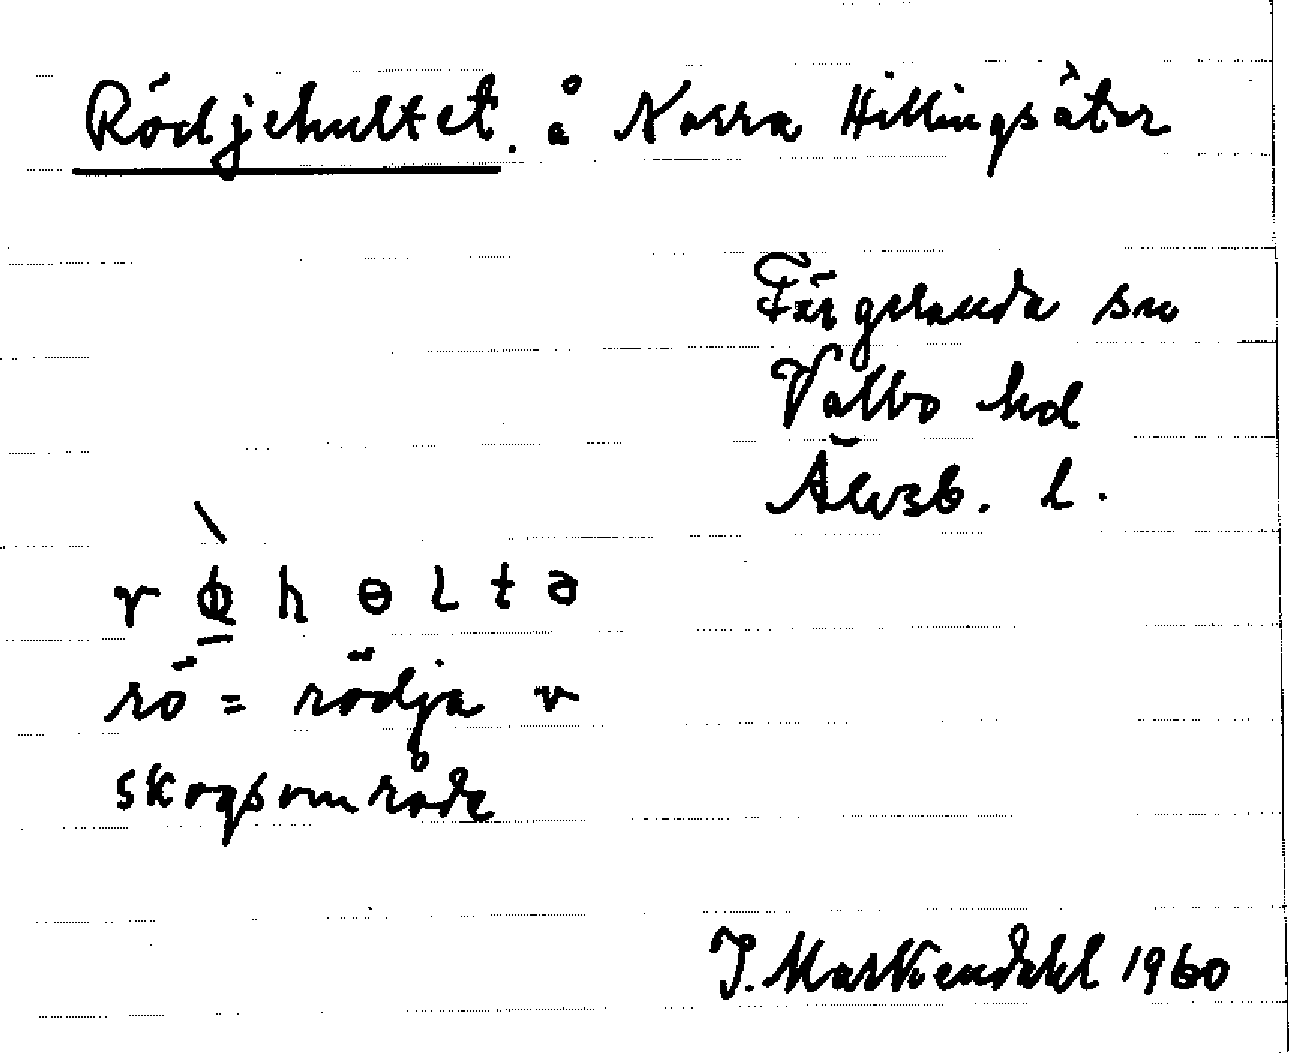 Rödjehultet. å Norra Hillingsäter
Färgelanda sn
Valbo hd
Älvsb. l.
rö = rödja v
skogsområde
1960